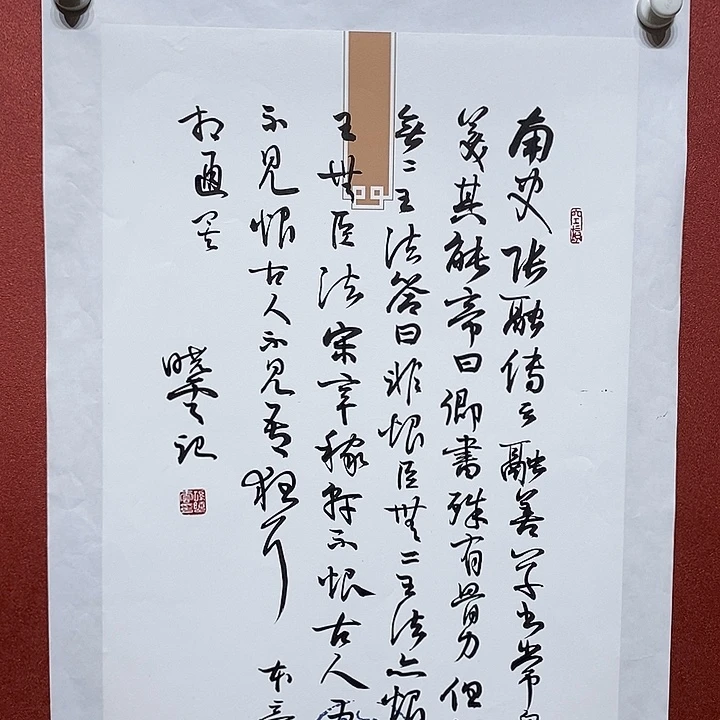 南史张融传云融善草书常自
美其能帝曰卿书殊有骨力但
无二王法答曰非恨臣无二王法亦恨
二王无臣法宋辛稼轩不恨古人吾
不见恨古人不见吾狂耳 本意
相通矣
晓云记